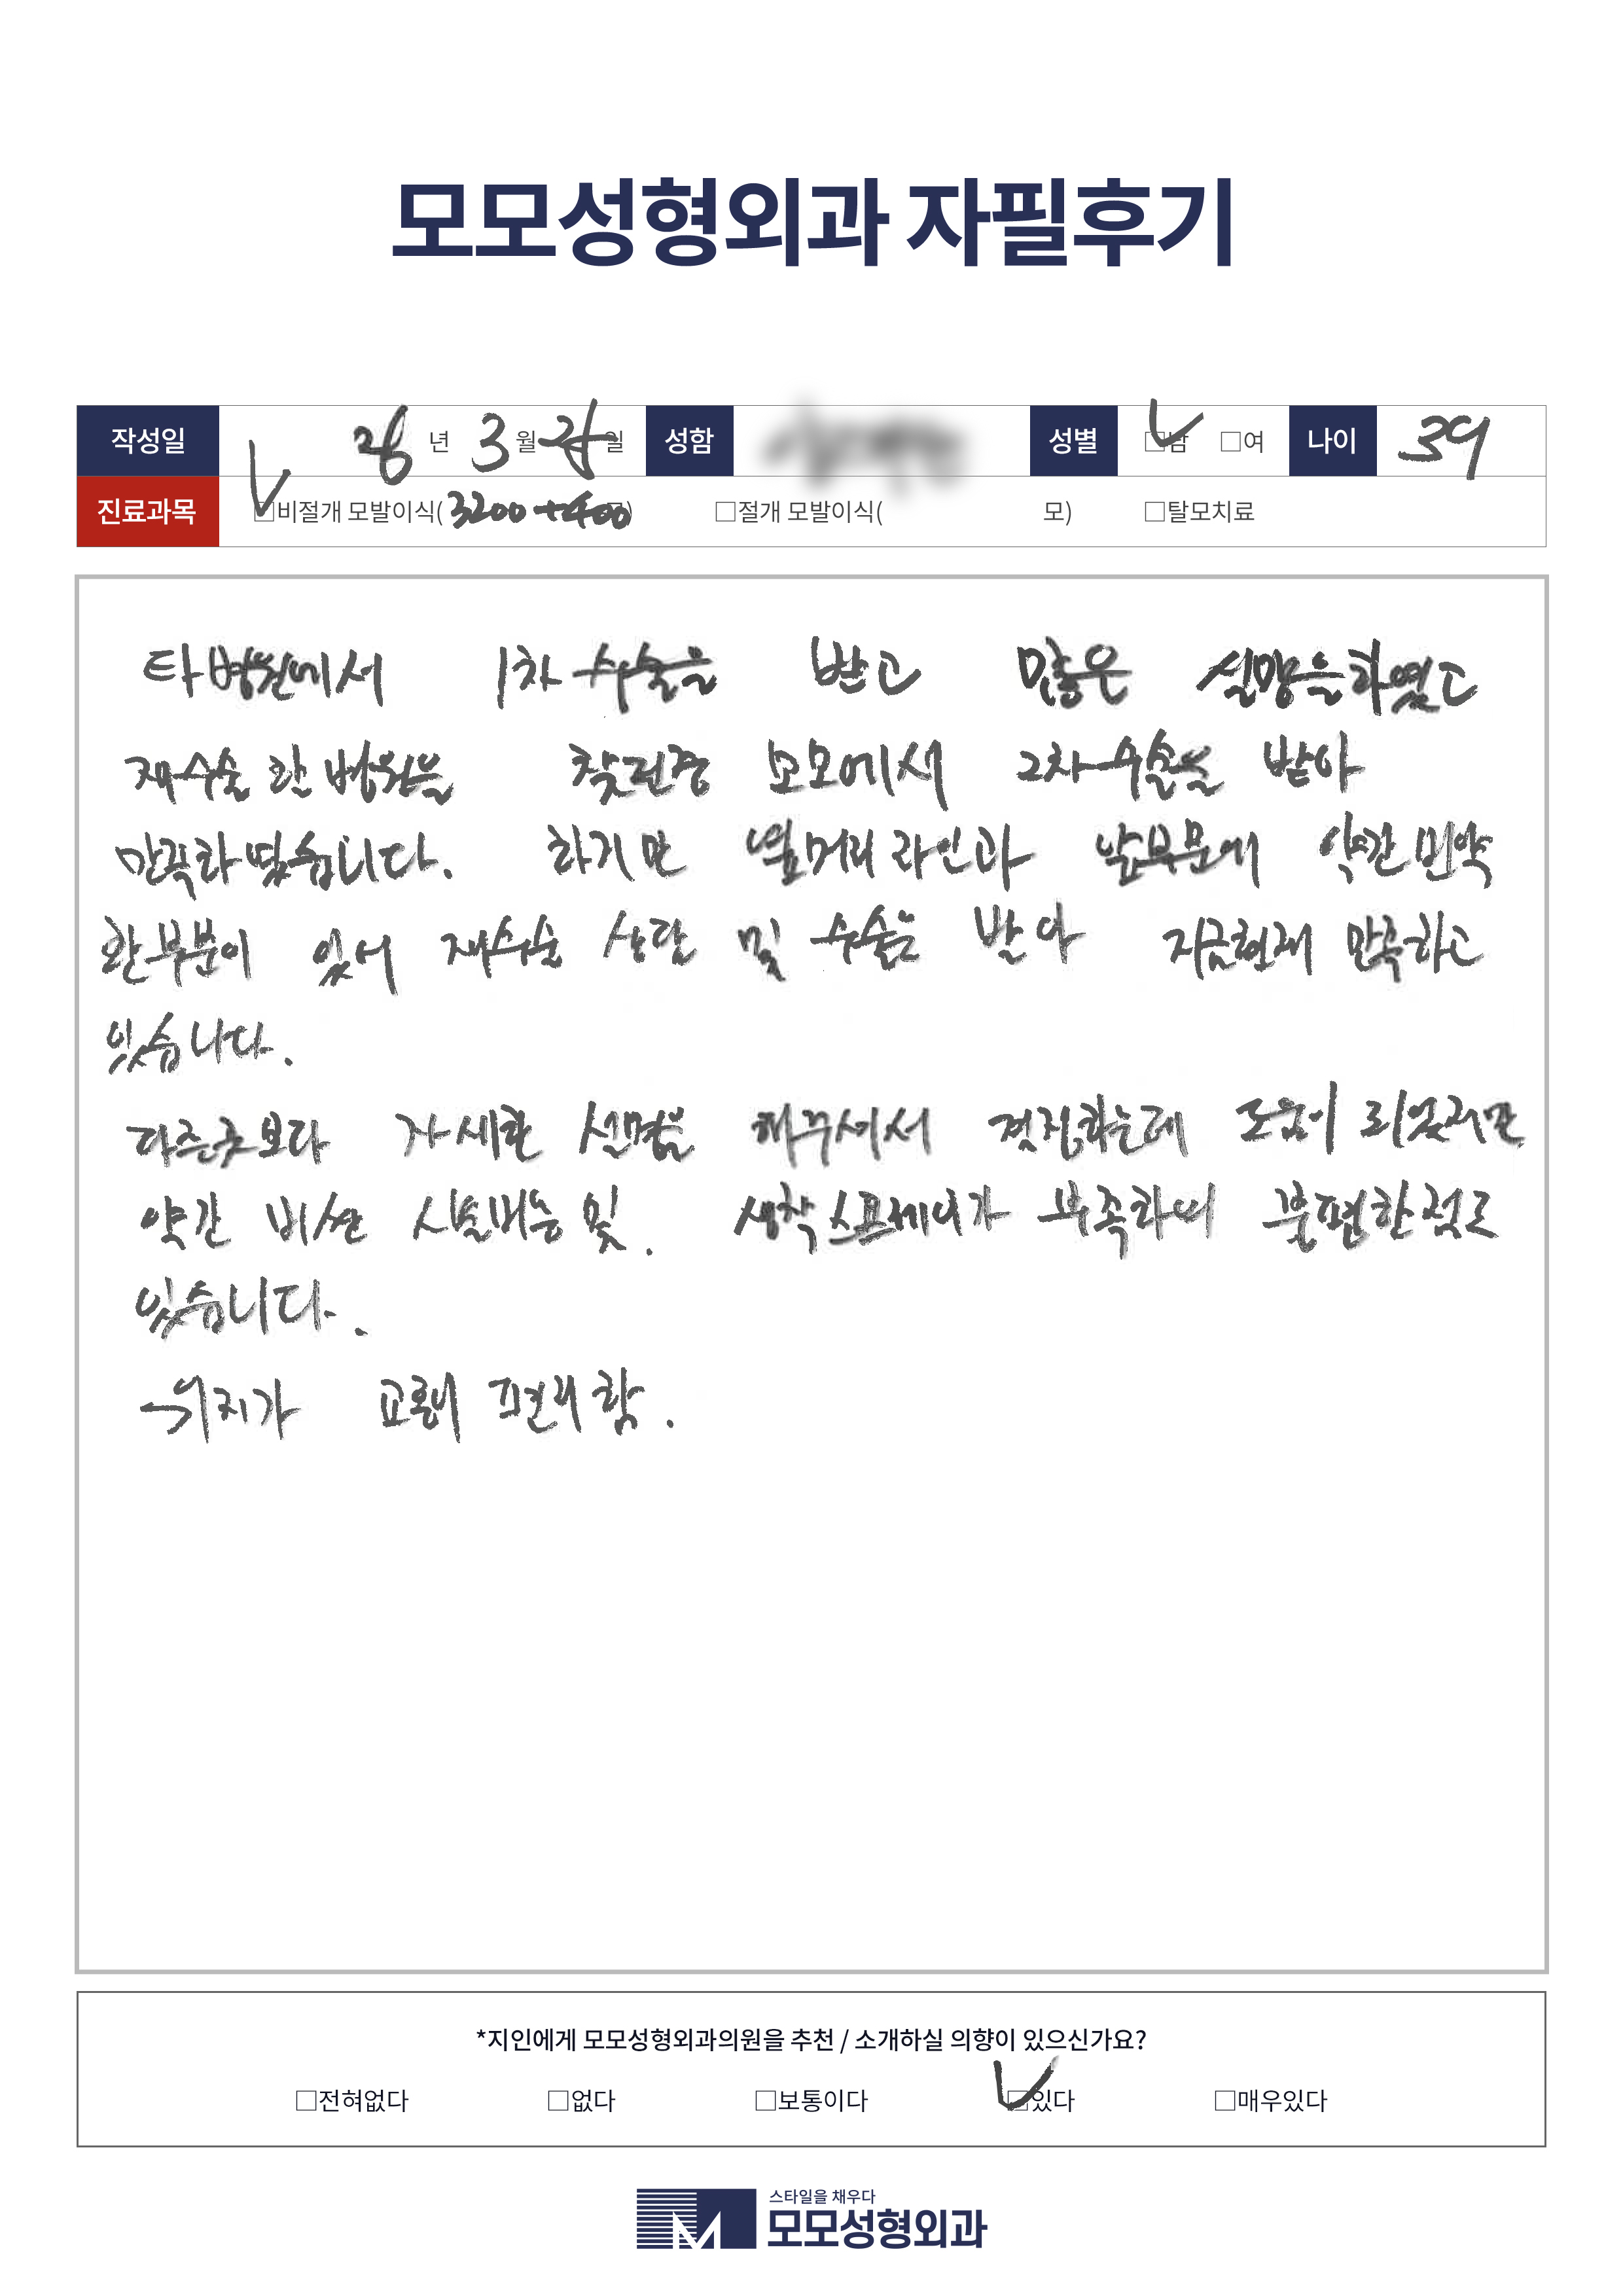 모모성형외과 자필후기
작성일 26년 3월 일 성함 성별 □남 □여 나이 39
진료과목 □비절개 모발이식(3200+400모) □절개 모발이식( 모) □탈모치료
타병원에서 1차 수술을 받고 많은 실망을하였고
재수술 할 병원을 찾던중 모모에서 2차 수술을 받아
만족하였습니다. 하지만 옆머리 라인과 앞부분에 약간 빈약
한부분이 있어 재수술 상담 및 수술을 받아 지금현재 만족하고
있습니다.
다른곳보다 자세한 설명을 해주셔서 결정하는데 도움이 되었지만
약간 비싼 시술비용 및. 생착스프레이가 부족하여 불편한점도
있습니다.
위치가 교통이 편리함.
*지인에게 모모성형외과의원을 추천 / 소개하실 의향이 있으신가요?
□전혀없다 □없다 □보통이다 □있다 □매우있다
스타일을 채우다
모모성형외과